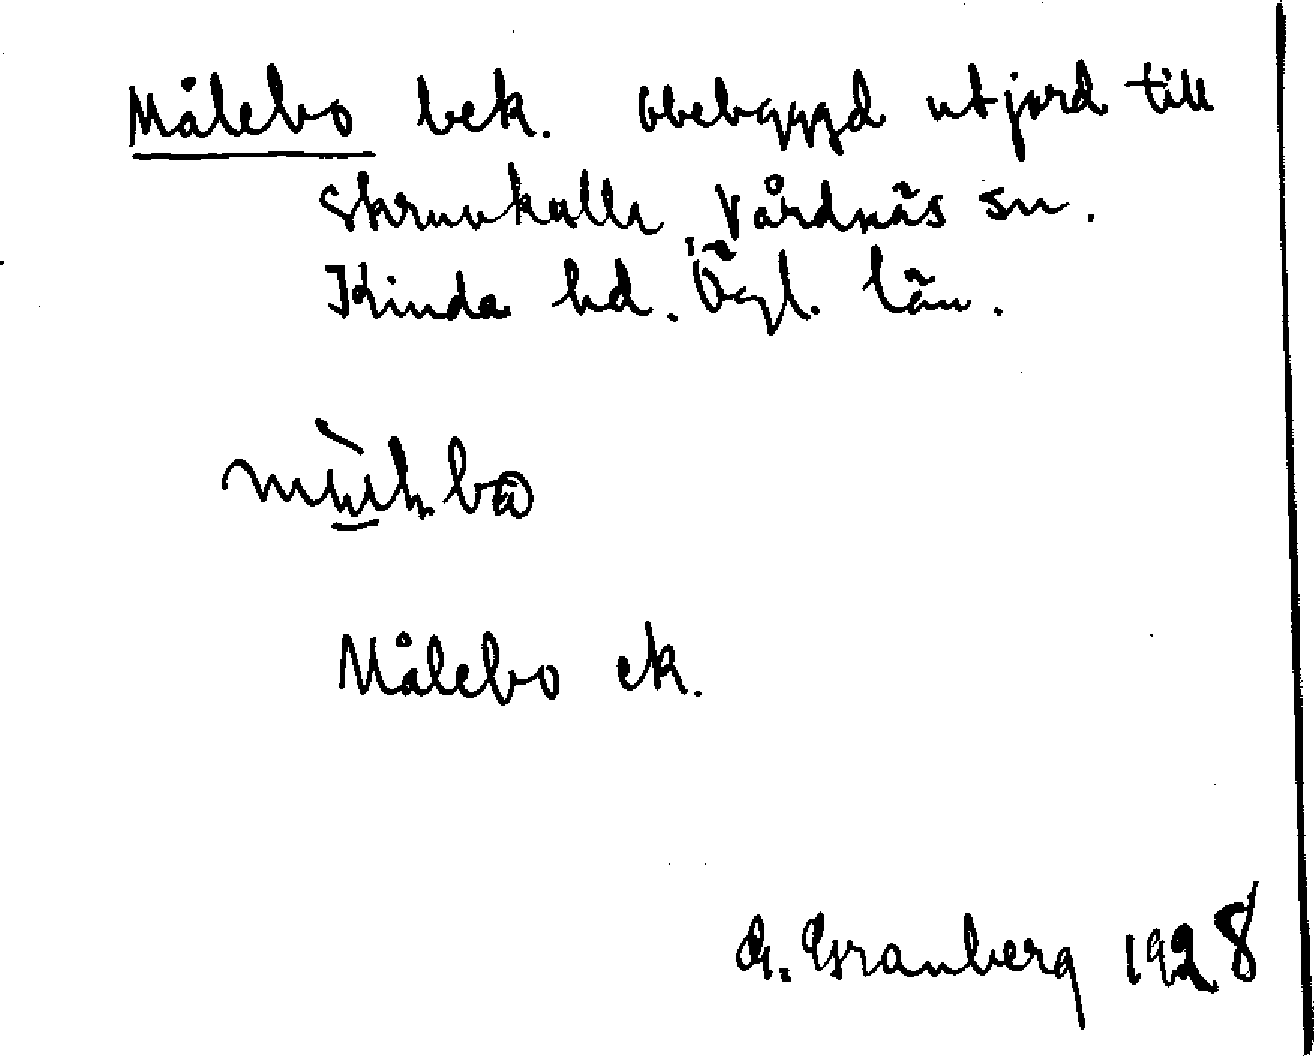 Målebo bek. obebyggd utjord till
Skruvkulla Vårdnäs sn.
Kinda hd. Ögl. län.
Målebo ek.
G. Granberg 1928